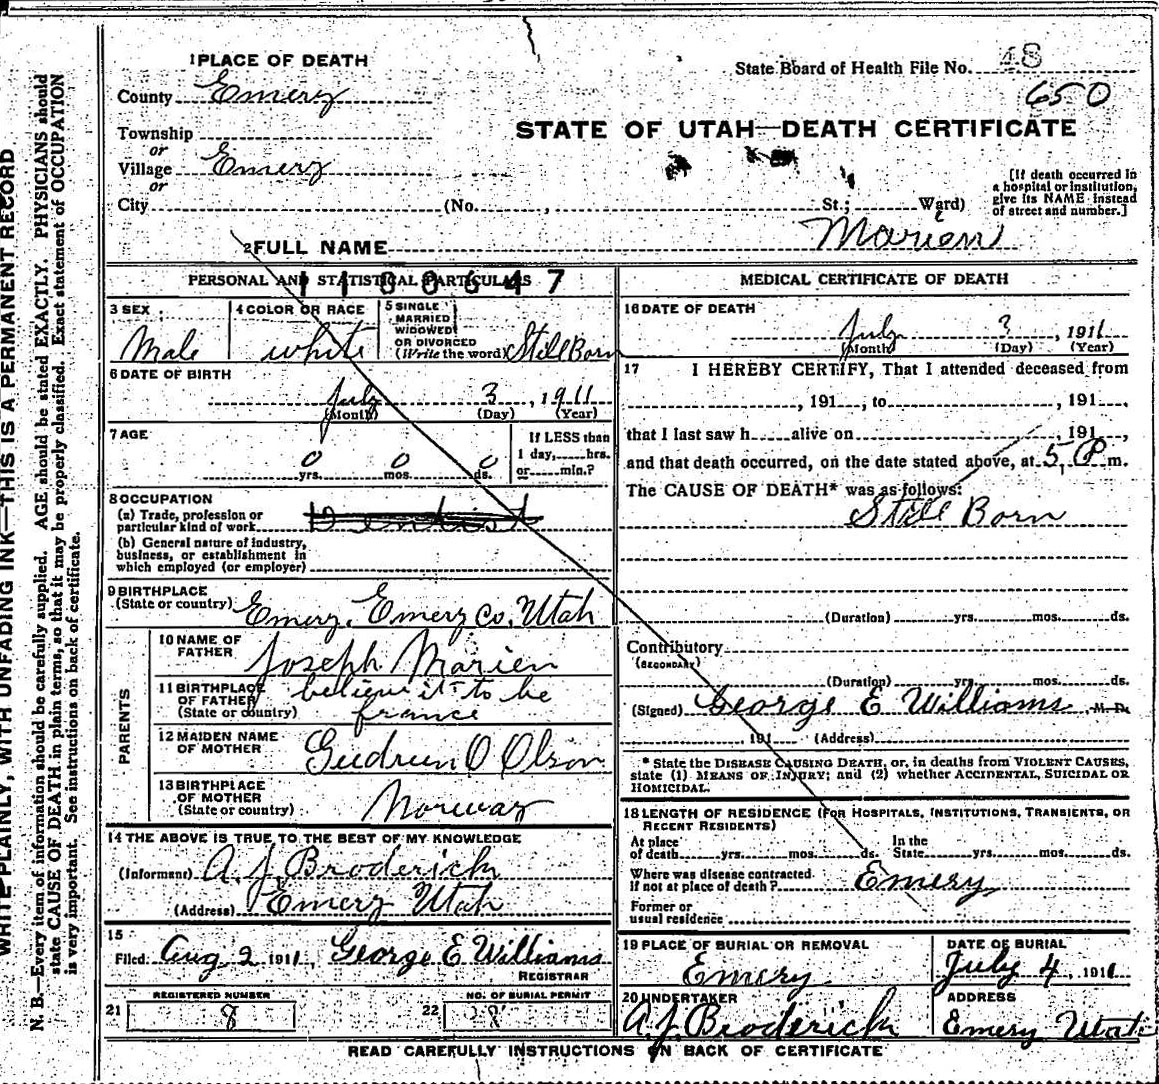 1 PLACE OF DEATH
State Board of Health File No. 48
650
County Emery
STATE OF UTAH—DEATH CERTIFICATE
Township
or
Village Emery
or
City (No. , St.; Ward)
[If death occurred in
a hospital or institution,
give its NAME instead
of street and number.]
2 FULL NAME Marien
PERSONAL AND STATISTICAL PARTICULARS
3 SEX
Male
4 COLOR OR RACE
white
5 SINGLE
MARRIED
WIDOWED
OR DIVORCED
(Write the word) Still Born
6 DATE OF BIRTH
July 3, 1911
(Month) (Day) (Year)
7 AGE
0 yrs. 0 mos. 0 ds.
If LESS than
1 day, hrs.
or min.?
8 OCCUPATION
(a) Trade, profession or
particular kind of work
(b) General nature of industry,
business, or establishment in
which employed (or employer)
9 BIRTHPLACE
(State or country) Emery, Emery Co, Utah
PARENTS
10 NAME OF
FATHER Joseph Marien
11 BIRTHPLACE
OF FATHER
(State or country)
believe it to be
france
12 MAIDEN NAME
OF MOTHER Gudrun O Olson
13 BIRTHPLACE
OF MOTHER
(State or country) Norway
14 THE ABOVE IS TRUE TO THE BEST OF MY KNOWLEDGE
(Informant) A. J. Broderick
(Address) Emery Utah
15
Filed Aug 2 1911, George E Williams
REGISTRAR
21 REGISTERED NUMBER
8
22 NO. OF BURIAL PERMIT
8
MEDICAL CERTIFICATE OF DEATH
16 DATE OF DEATH
July 3, 1911
(Month) (Day) (Year)
17 I HEREBY CERTIFY, That I attended deceased from
, 191 , to , 191 ,
that I last saw h alive on , 191 ,
and that death occurred, on the date stated above, at 5 P m.
The CAUSE OF DEATH* was as follows:
Still Born
(Duration) yrs. mos. ds.
Contributory
(SECONDARY)
(Duration) yrs. mos. ds.
(Signed) George E Williams M. D.
, 191 (Address)
* State the DISEASE CAUSING DEATH, or, in deaths from VIOLENT CAUSES,
state (1) MEANS OF INJURY; and (2) whether ACCIDENTAL, SUICIDAL OR
HOMICIDAL.
18 LENGTH OF RESIDENCE (FOR HOSPITALS, INSTITUTIONS, TRANSIENTS, OR
RECENT RESIDENTS)
At place
of death yrs. mos. ds.
In the
State yrs. mos. ds.
Where was disease contracted
if not at place of death? Emery
Former or
usual residence
19 PLACE OF BURIAL OR REMOVAL
Emery
DATE OF BURIAL
July 4, 1911
20 UNDERTAKER
A. J. Broderick
ADDRESS
Emery Utah
READ CAREFULLY INSTRUCTIONS ON BACK OF CERTIFICATE
WRITE PLAINLY, WITH UNFADING INK—THIS IS A PERMANENT RECORD
N. B.—Every item of information should be carefully supplied. AGE should be stated EXACTLY. PHYSICIANS should
state CAUSE OF DEATH in plain terms, so that it may be properly classified. Exact statement of OCCUPATION
is very important. See instructions on back of certificate.